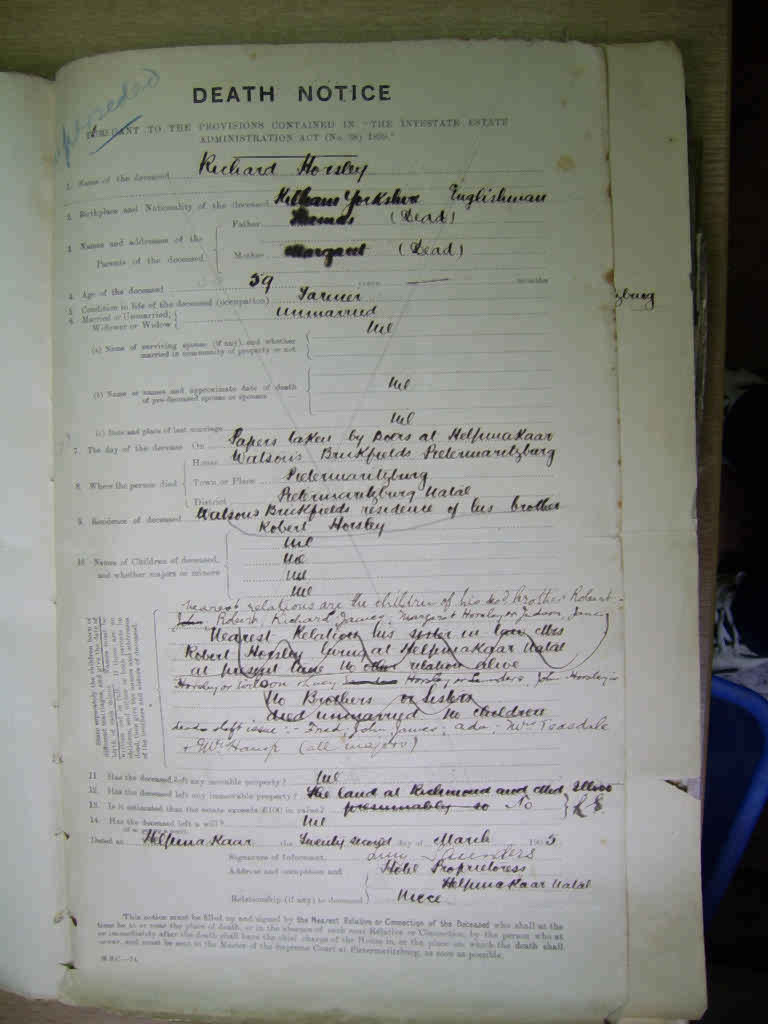 DEATH NOTICE
TO THE PROVISIONS CONTAINED IN "THE INTESTATE ESTATE
ADMINISTRATION ACT (No. 38) 1899."
1. Name of the deceased Richard Horsley
2. Birthplace and Nationality of the deceased Kilham Yorkshire Englishman
3. Names and addresses of the Parents of the deceased
Father Thomas (Dead)
Mother Margaret (Dead)
4. Age of the deceased 59 years — months
5. Condition in life of the deceased (occupation) Farmer
6. Married or Unmarried, Widower or Widow unmarried
(a) Name of surviving spouse (if any), and whether married in community of property or not Nil
(b) Name or names and approximate date of death of pre-deceased spouse or spouses Nil
(c) Date and place of last marriage Nil
7. The day of the decease On Papers taken by Boers at Helpmakaar
8. Where the person died
House Watsons Brickfields Pietermaritzburg
Town or Place Pietermaritzburg
District Pietermaritzburg Natal
9. Residence of deceased Watsons Brickfields residence of his brother
Robert Horsley
10. Names of Children of deceased, and whether majors or minors
Nil
Nil
Nil
Nil
nearest relations are the children of his brother Robert
John, Robert, Richard, James, Margaret Horsley or
Nearest Relation his sister in law Mrs
Robert Horsley living at Helpmakaar Natal
at present time No other relation alive
Horsley or Horsley or Saunders, John Horsley is
No Brothers or Sisters
died unmarried No children
dead & left issue :- Fred, John, James, Ada, Mrs Teasdale
+ (all majors)
11. Has the deceased left any movable property? Nil
12. Has the deceased left any immovable property? land at Richmond and
13. Is it estimated that the estate exceeds £100 in value? presumably so No
14. Has the deceased left a will? Nil
Dated at Helpmakaar the Twenty second day of March 1905
Signature of Informant,
Saunders
Address and occupation and Hotel Proprietoress
Helpmakaar Natal
Relationship (if any) to deceased Niece
This notice must be filled up and signed by the Nearest Relative or Connection of the Deceased who shall at the
time be at or near the place of death, or in the absence of such near Relative or Connection, by the person who at
or immediately after the death shall have the chief charge of the House in, or the place on which the death shall
occur, and must be sent to the Master of the Supreme Court at Pietermaritzburg, as soon as possible.